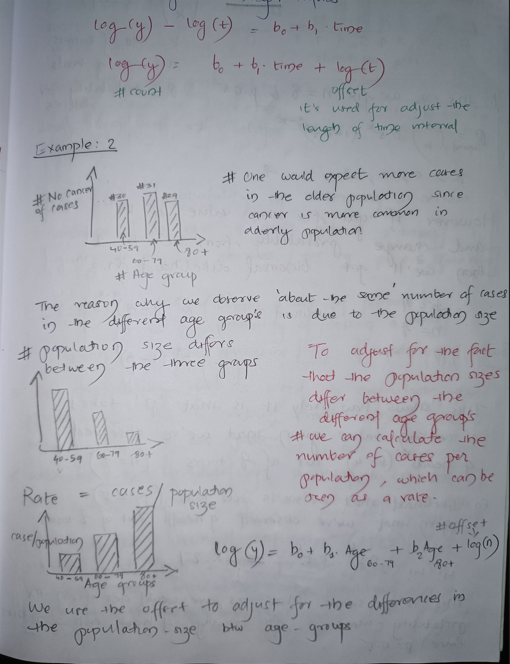 log(y) - log(t) = b₀ + b₁ · time
log(y) = b₀ + b₁ · time + log(t)
# count
offset
it's used for adjust the
length of time interval
Example: 2
# No cancer
of cases
40-59
60-79
80+
# Age group
# One would expect more cases
in the older population since
cancer is more common in
elderly population
The reason why we observe 'about the same' number of cases
in the different age group's is due to the population size
# population size differs
between the three groups
40-59 60-79 80+
To adjust for the fact
that the population sizes
differ between the
different age group's
# we can calculate the
number of cases per
population, which can be
seen as a rate.
Rate = cases/population
size
case/population
40-59 60-79 80+
Age groups
# offset
log(y) = b₀ + b₁ · Age 60-79 + b₂ Age 80+ + log(n)
We use the offset to adjust for the differences in
the population-size btw age-groups